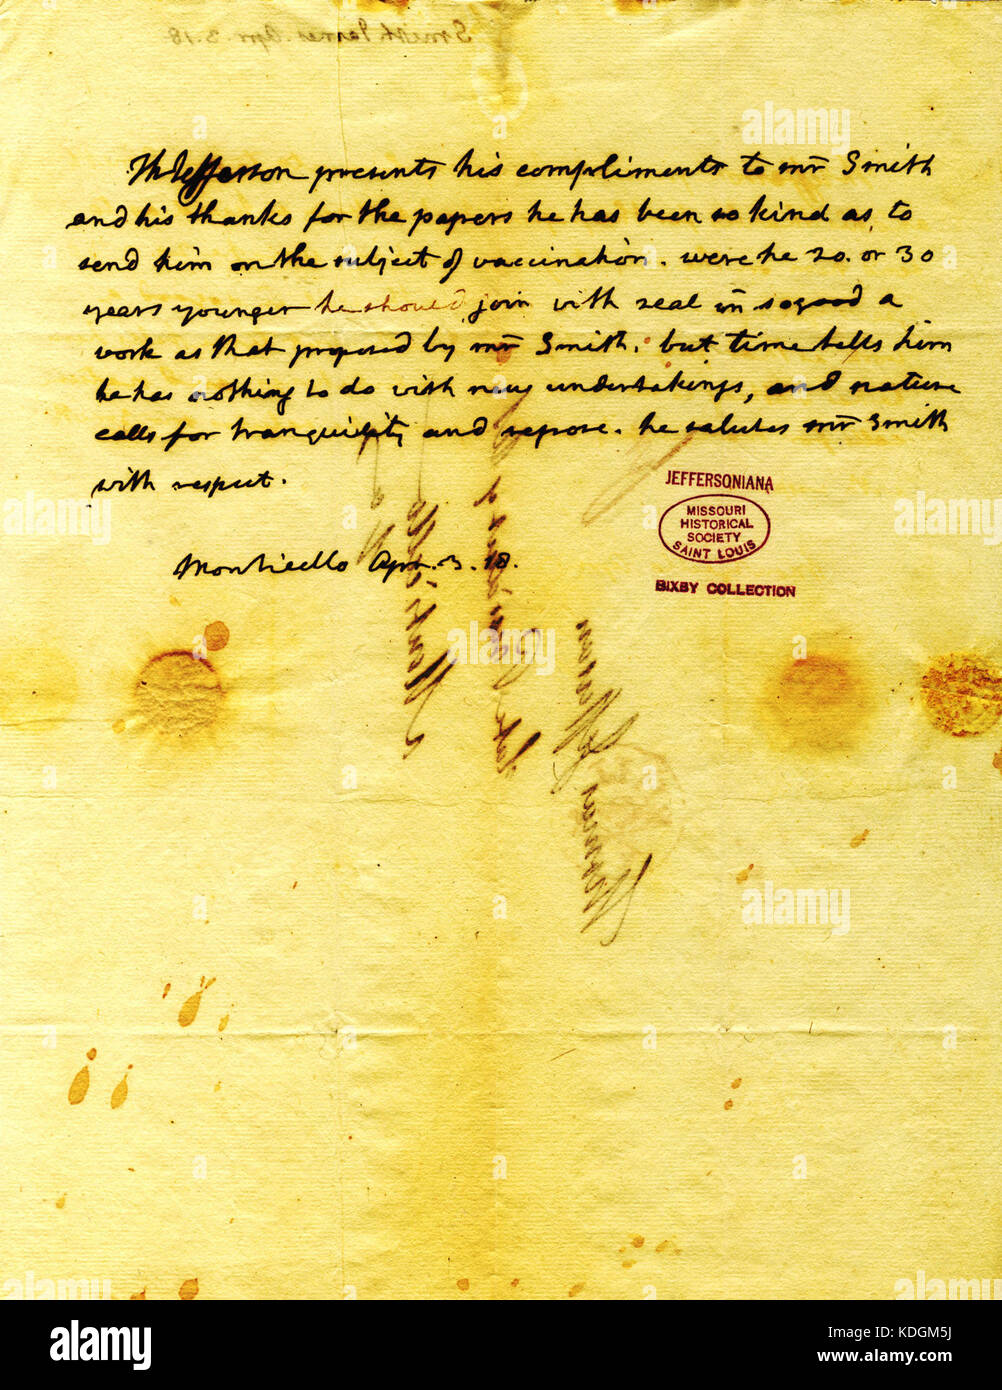 Th Jefferson presents his compliments to mr Smith
and his thanks for the papers he has been so kind as to
send him on the subject of vaccination. were he 20. or 30
years younger he should join with zeal in so good a
work as that proposed by mr Smith. but time tells him
he has nothing to do with new undertakings, and nature
calls for tranquility and repose. he salutes mr Smith
with respect.
Monticello Apr. 3. 18.
JEFFERSONIANA
MISSOURI
HISTORICAL
SOCIETY
SAINT LOUIS
BIXBY COLLECTION
Smith James. Apr. 3. 18
Thomas Jefferson
alamy
KDGM5J
www.alamy.com